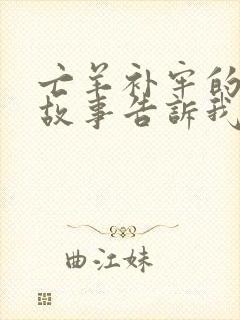 亡羊补牢的
故事告訴我
曲江妹